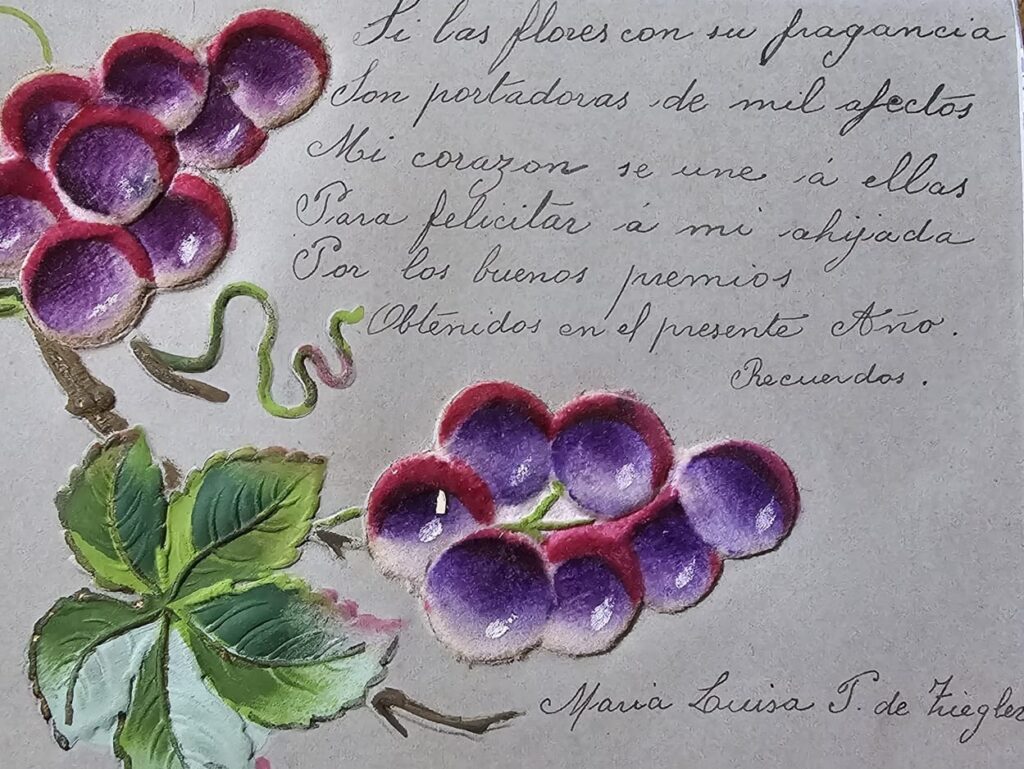 Si las flores con su fragancia
Son portadoras de mil afectos
Mi corazon se une á ellas
Para felicitar á mi ahijada
Por los buenos premios
Obtenidos en el presente Año.
Recuerdos.
Maria Luisa P. de Ziegler